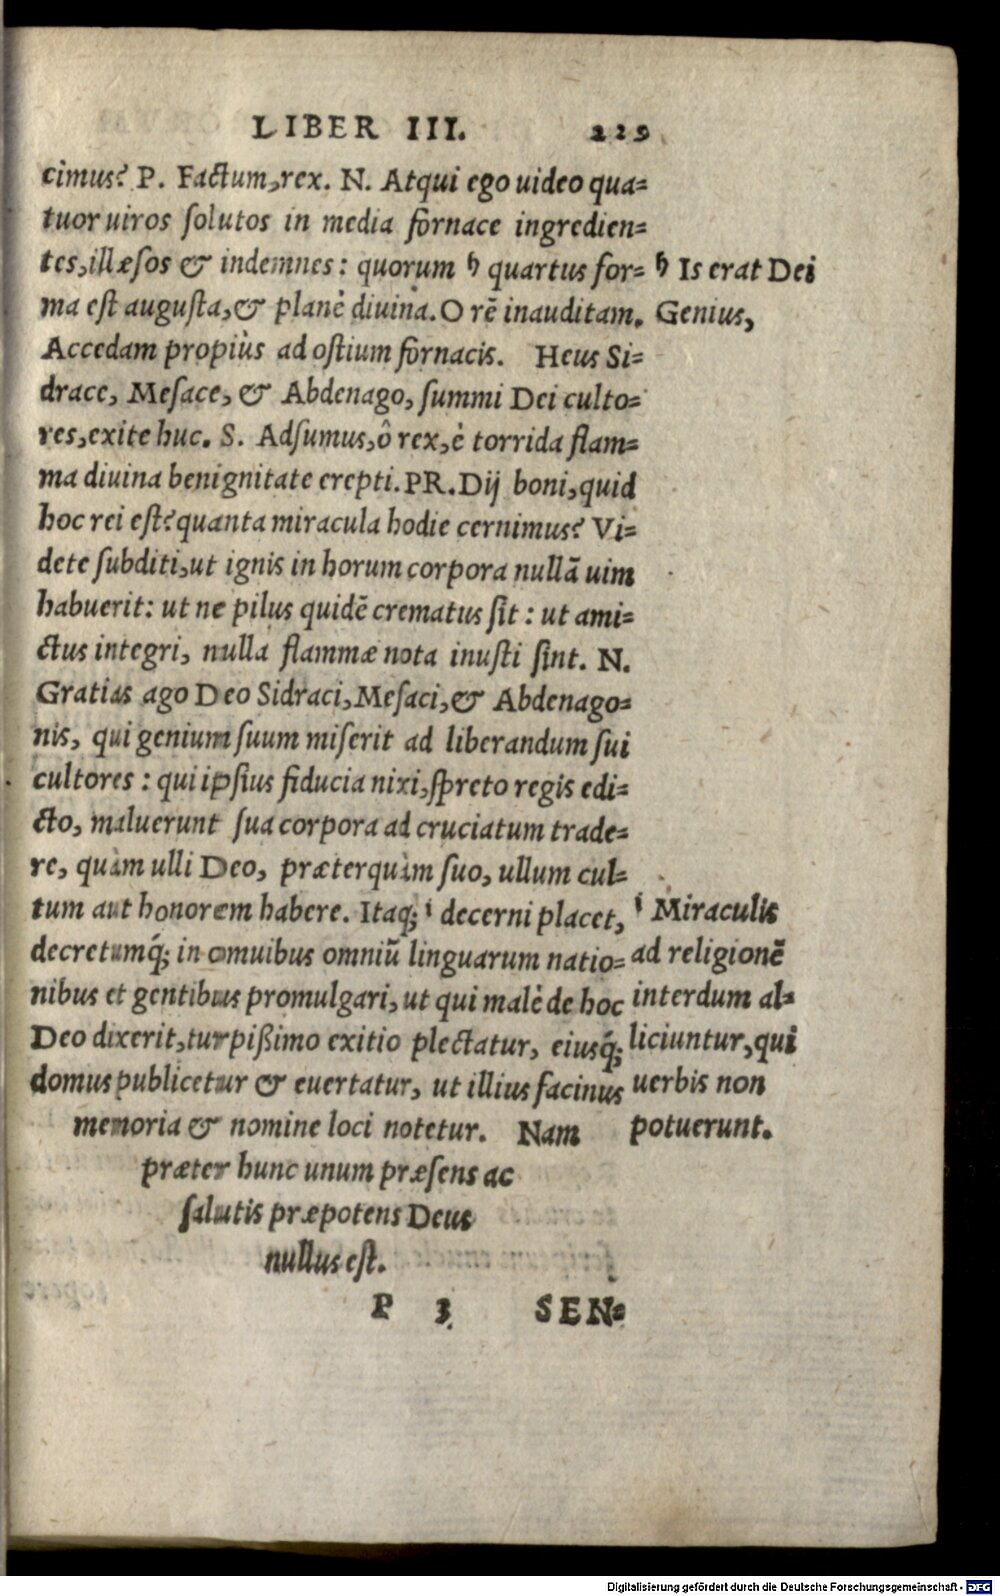 LIBER III. 229
cimus? P. Factum, rex. N. Atqui ego uideo qua=
tuor uiros solutos in media fornace ingredien=
tes, illæsos & indemnes: quorum h quartus for=
ma est augusta, & planè diuina. O rē inauditam.
Accedam propiùs ad ostium fornacis. Heus Si=
drace, Mesace, & Abdenago, summi Dei culto=
res, exite huc. S. Adsumus, ô rex, è torrida flam=
ma diuina benignitate erepti. PR. Dij boni, quid
hoc rei est? quanta miracula hodie cernimus? Vi=
dete subditi, ut ignis in horum corpora nullā uim
habuerit: ut ne pilus quidē crematus sit: ut ami=
ctus integri, nulla flammæ nota inusti sint. N.
Gratias ago Deo Sidraci, Mesaci, & Abdenago=
nis, qui genium suum miserit ad liberandum sui
cultores: qui ipsius fiducia nixi, spreto regis edi=
cto, maluerunt sua corpora ad cruciatum trade=
re, quàm ulli Deo, præterquàm suo, ullum cul=
tum aut honorem habere. Itaq; i decerni placet,
decretumq́; in omuibus omniū linguarum natio=
nibus et gentibus promulgari, ut qui malè de hoc
Deo dixerit, turpißimo exitio plectatur, eiusq́;
domus publicetur & euertatur, ut illius facinus
memoria & nomine loci notetur. Nam
præter hunc unum præsens ac
salutis præpotens Deus
nullus est.
h Is erat Dei
Genius,
i Miraculis
ad religionē
interdum al=
liciuntur, qui
uerbis non
potuerunt.
P 3 SEN=
Digitalisierung gefördert durch die Deutsche Forschungsgemeinschaft - DFG